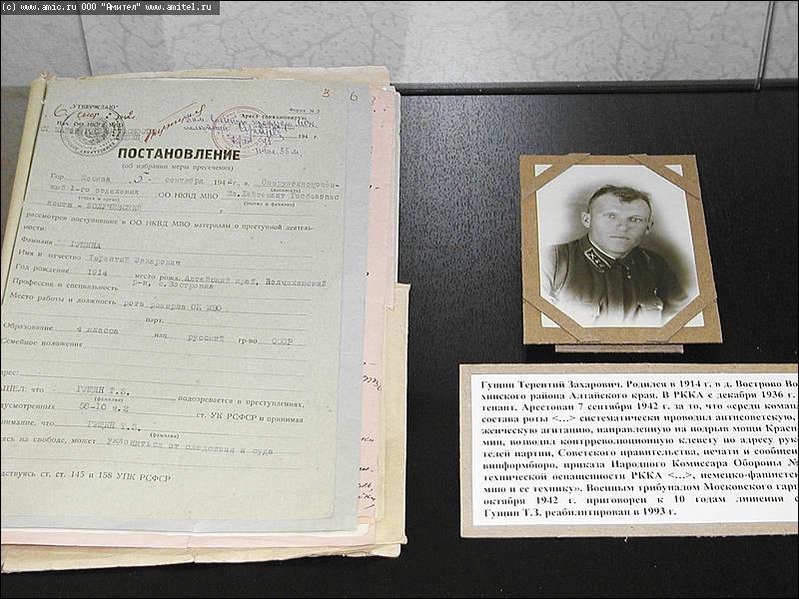 (c) www.amic.ru ООО "Амител" www.amitel.ru
3 6
"УТВЕРЖДАЮ"
Форма № 2
Арест санкционирую
194 г.
ПОСТАНОВЛЕНИЕ
(об избрании меры пресечения)
Гор. Москва 5 сентября 1942 г. я, Оперуполномочен-
ный 1-го отделения ОО НКВД МВО Мл. Лейтенант Госбезопас
(должность)
(звание и фамилия)
ности -
рассмотрев поступившие в ОО НКВД МВО материалы о преступной деятель-
ности:
Фамилия ГУЩИНА
Имя и отчество Терентий Захарович
Год рождения 1914 место рожд. Алтайский край, Волчихинский
Профессия и специальность р-н, с. Востровка
Место работы и должность рота резерва ОК МВО
парт.
Образование 4 класса нац. русский гр-во СССР
Семейное положение
АШЕЛ: что ГУЩИН Т.З. подозревается в преступлениях,
(фамилия)
дусмотренных 58-10 ч.2 ст. УК РСФСР и принимая
внимание, что ГУЩИН Т.З.
(фамилия)
ясь на свободе, может уклониться от следствия и суда
дствуясь ст. ст. 145 и 158 УПК РСФСР
Гущин Терентий Захарович. Родился в 1914 г. в д. Вострово Во
хинского района Алтайского края. В РККА с декабря 1936 г.
тенант. Арестован 7 сентября 1942 г. за то, что «среди коман
состава роты <...> систематически проводил антисоветскую,
женческую агитацию, направленную на подрыв мощи Красн
мии, возводил контрреволюционную клевету по адресу руко
телей партии, Советского правительства, печати и сообщен
винформбюро, приказа Народного Комиссара Обороны №
технической оснащенности РККА <...>, немецко-фашистск
мию и ее технику». Военным трибуналом Московского гарн
октября 1942 г. приговорен к 10 годам лишения с
Гущин Т.З. реабилитирован в 1993 г.